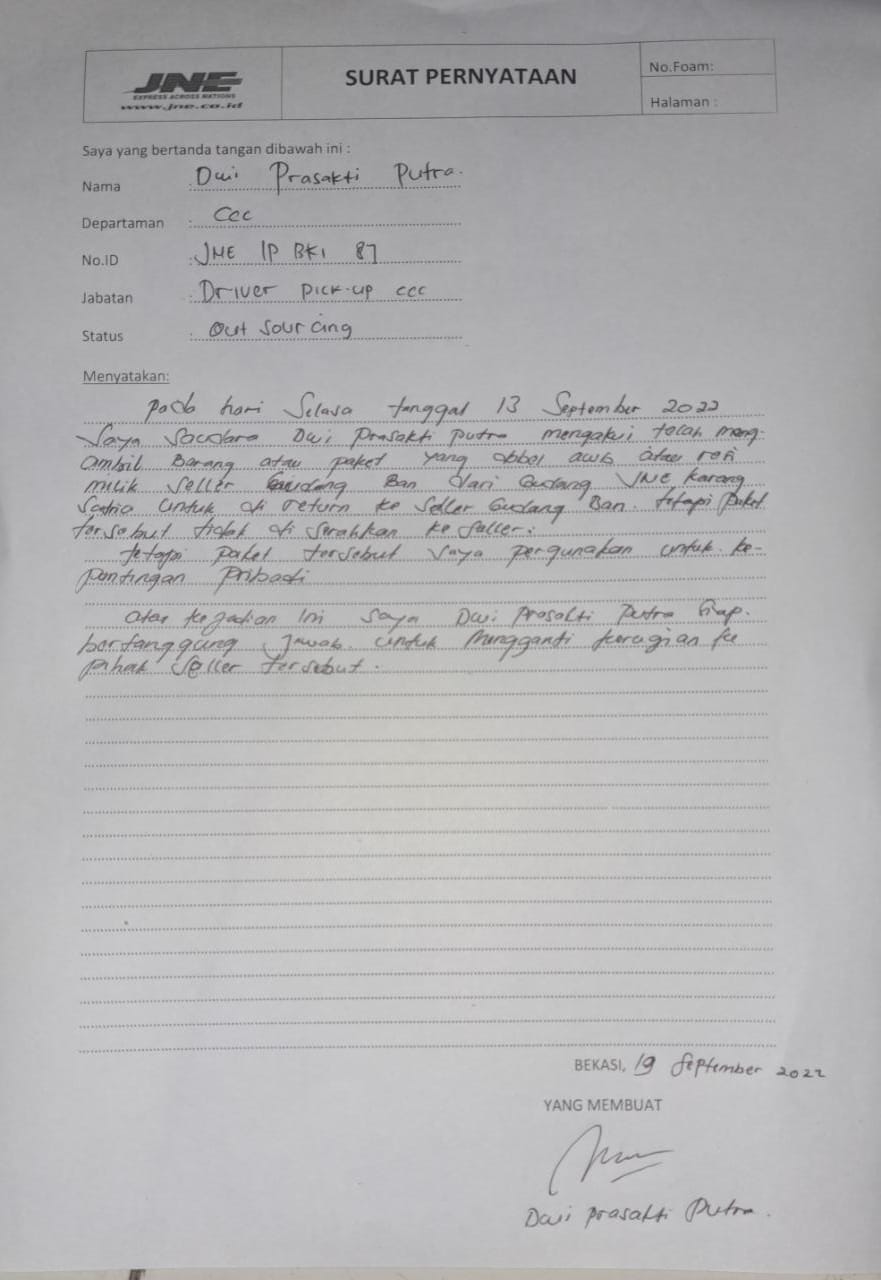 JNE
EXPRESS ACROSS NATIONS
www.jne.co.id
SURAT PERNYATAAN
No.Foam:
Halaman :
Saya yang bertanda tangan dibawah ini :
Nama : Dwi Prasakti Putra.
Departaman : CCC
No.ID : JNE IP BKI 87
Jabatan : Driver pick-up ccc
Status : Out sourcing
Menyatakan:
pada hari Selasa tanggal 13 September 2022
Saya Saudara Dwi Prasakti putra mengakui telah meng-
ambil Barang atau paket yang double awb atau
milik Seller Gudang Ban dari Gudang JNE karang
Satria untuk di return ke Seller Gudang Ban. tetapi paket
tersebut tidak di serahkan ke seller.
tetapi paket tersebut saya pergunakan untuk ke-
pentingan Pribadi
atas kejadian ini saya Dwi prasakti putra siap.
bertanggung jawab. untuk mengganti kerugian ke
pihak seller tersebut.
BEKASI, 19 September 2022
YANG MEMBUAT
Dwi prasakti Putra.